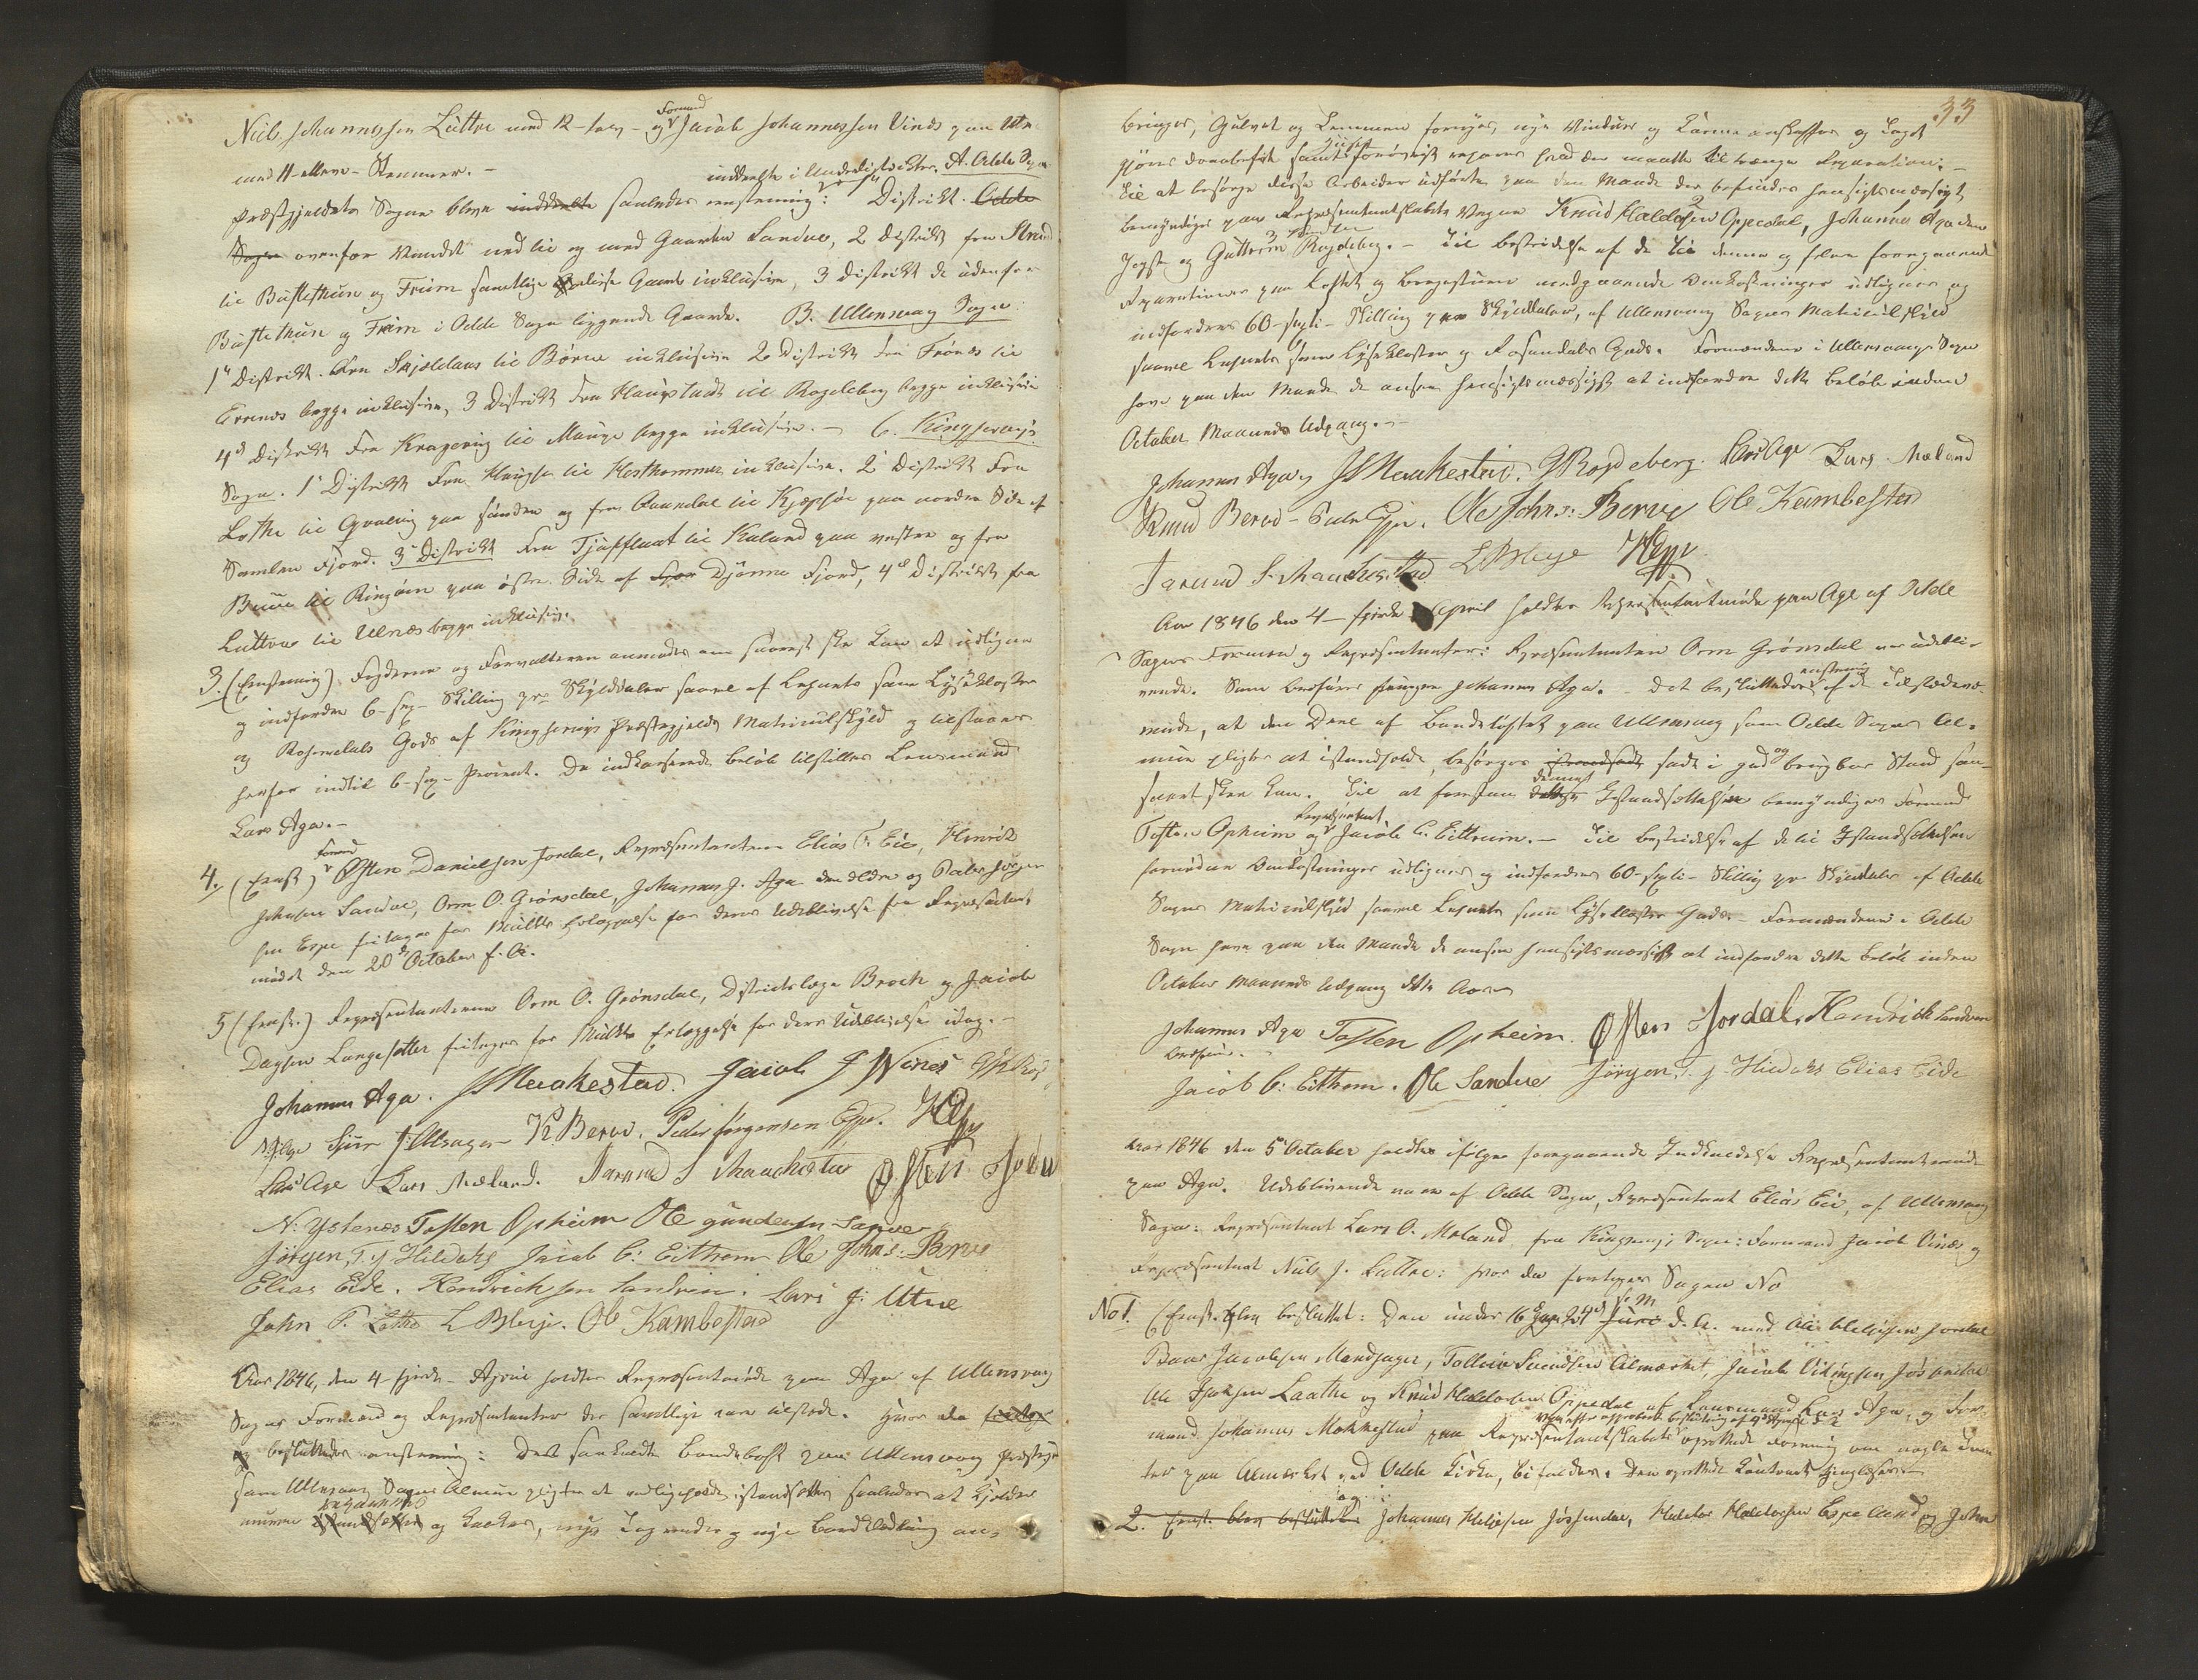 Niels Johannessen Lüttre med 12-tolv- og Formand Jacob Johannessen Vinæs paa Utne
med 11-elleve-Stemmer.-
Præstgjeldets Sogne bleve inddeelte i Underdistrikter, A. Odde Sogn
saaledes eenstemmig: 1ste District. Odde
Sogn ovenfor Vandet ned til og med Gaarden Sandve, 2 District fra
til Büstethun og Freim samtlige disse Gaarde inklusive, 3 District de udenfor
Büstethun og Freim i Odde Sogn liggende Gaarde. B. Ullensvang Sogn:
1ste District. Fra Skjældaas til Børve inklusive 2 District fra Frönæs til
Ernes begge inklusive, 3 District fra Haugstad til Rogdeberg begge inklusive
4de District fra Krageviig til Mauge begge inklusive.- C. Kingservigs
Sogn. 1 District fra Haugse til Hesthammer inklusive. 2 District fra
Lothe til Qvalvig paa søndre og fra Aaundal til Kjepsøe paa nordre Side af
Samlen Fjord. 3 District fra Tjoflaat til Kaland paa vestre og fra
Bruu til Ringøen paa østre Side af Djönne Fjord, 4de District fra
Lüttre til Ulnæs begge inklusive.
3. (Eenstemmig) Fogderne og Forvalteren anmodes om snarest skee kan at udligne
og indfordre 6-sex-Skilling pr Skylddaler saavel af Leguets som Lysekloster
og Rosendals Gods af Kingservigs Præstegjelds Matriculskyld og tilstaaes
herfor indtil 6-sex-Procent. De indkasserede Beløb tilstilles Lensmand
Lars Aga.-
4. (Eenst) Formand Østen Danielsen Jordal, Repræsentanterne Elias T. Eie, Henrik
Johnsen Sandve, Orm O. Grönsdal, Johannes J. Aga den ældre og Peder Jørgen-
sen Espe fritages for Mulkts Erlæggelse for deres Udeblivelse fra Repræsentant-
mødet den 20de October f. A.
5 (Eenst.) Repræsentanterne Orm O. Grönsdal, Distriktslæge Broch og Jacob
Dagsen Langesæter fritages for Mulkts Erlæggelse for deres Udeblivelse idag.-
Johannes Aga. JS Maakestad. Jaiob J Winæs
Siur J: Alsager K Berve. Peder Jørgensen Espe. HEspe
Lars Age Lars Mæland. Aamund S Maachestad Østen Jordal
N: Ystenæs Tosten Opheim Ole gundersen Sanver
Jørgen, T. J Hildahl Jacob C: Eithrem Ole Johns: Berve
Elias Eide. Hendrich Jon Sandvin. Lars J: Utne
John P. Lothe L Bleje. Ole Kambestad
Aar 1846, den 4-fjerde-April holdtes Repræsentmøde paa Aga af Ullensvang
Sogns Formænd og Repræsentanter der samtlige vare tilstede. Hvor da
besluttedes eenstemmig: Det saakaldte Bondeloft paa Ullensvang Præstegr
som Ullensvang Sogns Almue pligter at vedligeholde istandsættes saaledes at Kjælder
muren og Taket, nye Tag under og nye Bordklædning an-
33
bringes, Gulvet og Lemmene fornyes, nye Vinduer og Karme anskaffes og Taget
gjøres samt forøvrigt repareres hvad der maatte tiltrænge Reparation.-
Til at besørge disse Arbeider udførte paa den Maade der befindes hensigtsmæssigt
bemyndiges paa Repræsentantskabets Vegne Knud Haldorsen Oppedal, Johannes Aga den
yngste og Guttorm Rogdeberg.- Til Bestridelse af de til denne og flere foregaaende
Reparationer paa Loftet og Borgestuen medgaaende Omkostninger udlignes og
indfordres 60-sexti-Skilling pr Skylddaler, af Ullensvang Sogns Matriculskyld
saavel Leguets som Lysekloster og Rosendals Gods. Formændene i Ullensvangs Sogn
have paa den Maade de ansee hensigtsmæssigst at indfordre dette Beløb inden
October Maaneds Udgang.-
Johannes Aga. JSMaakestad. GRogdeberg. Lars Age Lars Mæland
Knud Berve-Peder Espe. Ole Johns: Berve Ole Kambestad
Aamund S. Maachestad L Bleye HEspe
Aar 1846 den 4-fjerde April holdtes Repræsentantmøde paa Age af Odde
Sogns Formænd og Repræsentanter: Repræsentanten Orm Grönsdal var udebli-
vende. Som Ordfører fungerer Johannes Aga.- Det besluttedes eenstemmig af de Tilstedevæ-
rende, at den Deel af Bondeloftet paa Ullensvang som Odde Sogns Al-
mue pligter at istandholde, besørges sadt i god og brugbar Stand saa-
snart skee kan. Til at forestaa denne Istandsættelsen bemyndiges Formænd
Tosten Opheim og Repræsentant Jacob C. Eittreim.- Til Bestridelse af de til Istandsættelsen
fornødne Omkostninger udlignes og indfordres 60-sexti-Skilling pr Skylddaler af Odde
Sogns Matriculskyld saavel Leguets som Lysekloster Gods.- Formændene i Odde
Sogn have paa den Maade de ansee hensigtsmæssigst at indfordre dette Beløb inden
October Maaneds Udgang dette Aar.
Johannes Aga Tosten Opheim. Østen Jordal. Hendrich Sandven
Ordfører.
Jaiob C: Eithrem. Ole Sandve Jörgen, T. J. Hildahs Elias Eide
Aar 1846 den 5 October holdtes ifølge foregaaende Indkaldelse Repræsentantmøde
paa Aga. Udeblivende vare af Odde Sogn, Repræsentant Elias Eie, af Ullensvang
Sogn: Repræsentant Lars O. Mæland fra Kingservigs Sogn: Formand Jacob Vinæs og
Repræsentant Niels J. Luttre: hvor da foretoges Sagen No
No 1. (Eenst. blev besluttet: Den under 16 24d d. A. med Ole Helgesen Jordal
Baar Jacobsen Mandsager, Tollev Svendsen Almærket, Jacob Vikingsen Jøsendal
Ole Laathe og Knud Haldorsen Oppedal af Lensmand Lars Aga, og For-
mand Johannes Mokkestad paa Repræsentantskabets oprettede Forening om nogle Tom-
ter paa Almærket ved Odde Kirke, bifaldes. Den oprettede Contract thinglæses.-
2. Eenst. blev besluttet Johannes Helgesen Jøsendal, Haldor Haldorsen Espeland og John